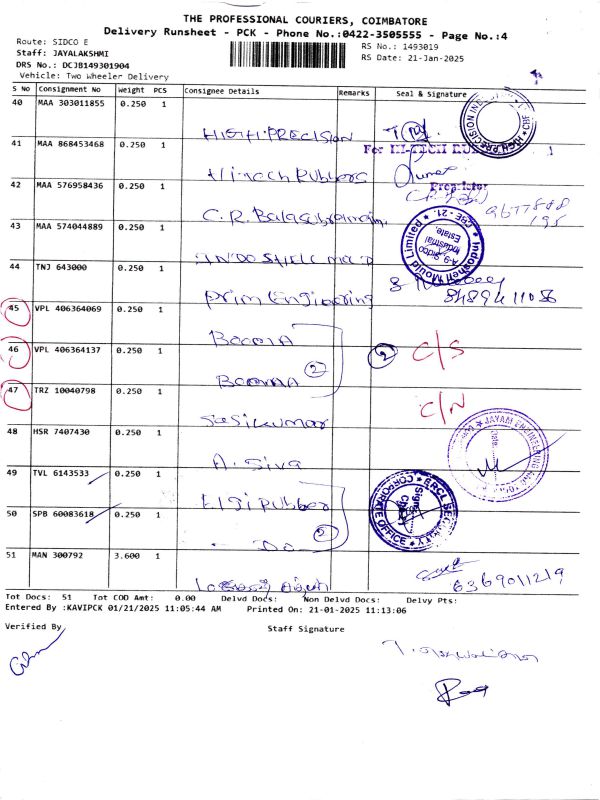 THE PROFESSIONAL COURIERS, COIMBATORE
Delivery Runsheet - PCK - Phone No.:0422-3505555 - Page No.:4
Route: SIDCO E
Staff: JAYALAKSHMI
DRS No.: DCJB149301904
Vehicle: Two Wheeler Delivery
RS No.: 1493019
RS Date: 21-Jan-2025
S No Consignment No Weight PCS Consignee Details Remarks Seal & Signature
40 MAA 303011855 0.250 1
HIGH PRECISION
41 MAA 868453468 0.250 1
For HI-TECH RUB
Hi-Tech Rubbers
42 MAA 576958436 0.250 1
Proprietor
C.R. Balasubramani
43 MAA 574044889 0.250 1
Indoshell Mould Limited
A-9, Sidco
Industrial
Estate,
CBE - 21.
INDO SHELL MOULD
44 TNJ 643000 0.250 1
Prim Engineering
45 VPL 406364069 0.250 1
46 VPL 406364137 0.250 1
2
2
C/S
47 TRZ 10040798 0.250 1
C/N
Sasikumar
48 HSR 7407430 0.250 1
JAYAM ENGINEERING
A. Siva
49 TVL 6143533 0.250 1
Elgi Rubber
CORPORATE OFFICE
50 SPB 60083618 0.250 1
2
DO
51 MAN 300792 3.600 1
6369011219
Tot Docs: 51 Tot COD Amt: 0.00 Delvd Docs: Non Delvd Docs: Delvy Pts:
Entered By :KAVIPCK 01/21/2025 11:05:44 AM Printed On: 21-01-2025 11:13:06
Verified By
Staff Signature